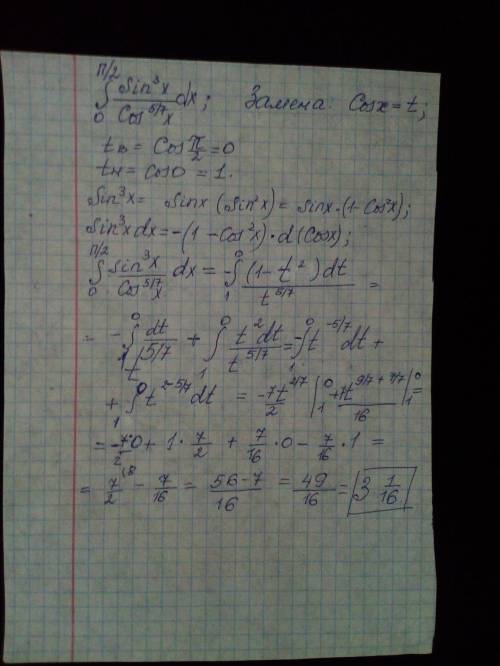 ∫₀^{π/2} sin³x / cos^{5/7}x dx; Замена: Cosx = t;
tв = Cos π/2 = 0
tн = cos0 = 1.
Sin³x = Sinx (Sin²x) = sinx·(1-Cos²x);
Sin³x dx = -(1-Cos²x)·d(Cosx);
∫₀^{π/2} sin³x / Cos^{5/7}x dx = -∫₁⁰ (1-t²)dt / t^{5/7} =
= -∫₁⁰ dt / t^{5/7} + ∫₁⁰ t²dt / t^{5/7} = -∫₁⁰ t^{-5/7} dt +
+ ∫₁⁰ t^{2-5/7} dt = -7t^{2/7} / 2 |₁⁰ + 7t^{9/7+7/7} / 16 |₁⁰ =
= -7/2·0 + 1·7/2 + 7/16·0 - 7/16·1 =
= 7/2 (8 - 7/16 = 56-7 / 16 = 49/16 = 3 1/16